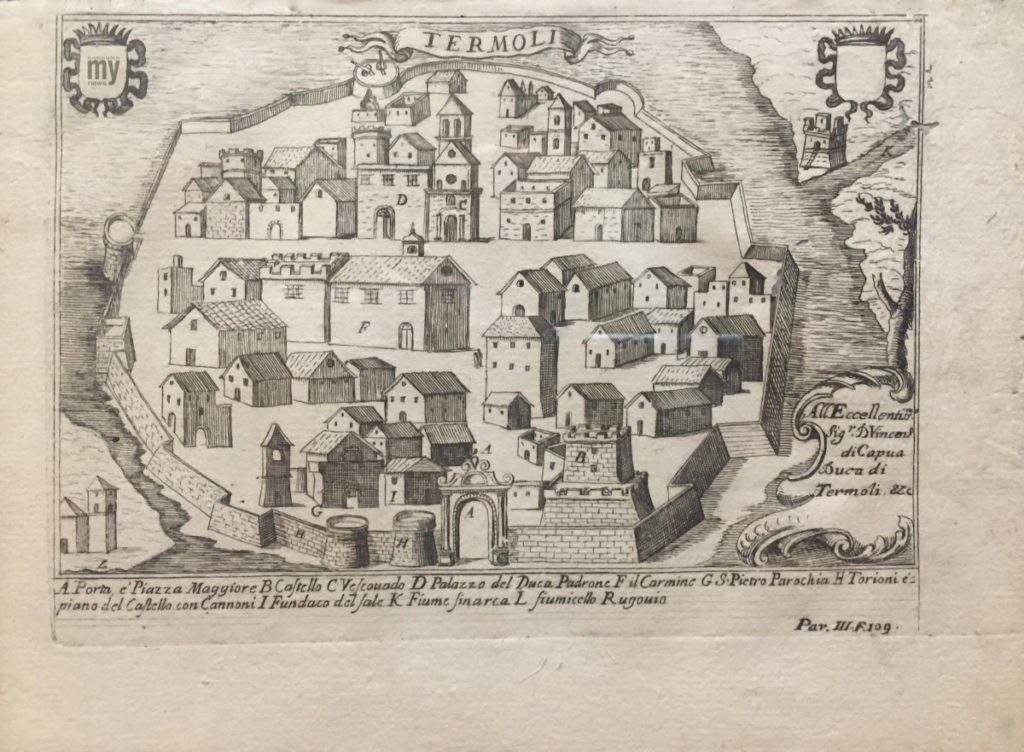 TERMOLI
my
news
D
C
F
A
B
A
I
G
H
H
K
L
All' Eccellentis.
Sig.r D. Vincen.
di Capua
Duca di
Termoli. &c
A Porta, e' Piazza Maggiore B Castello C Vescouado D Palazzo del Duca Padrone F il Carmine G S. Pietro Parochia H Torioni é
piano del Castello con Cannoni I Funduco del sale K Fiume sinarca L fiumicello Rugouio
Par. III. F. 109.